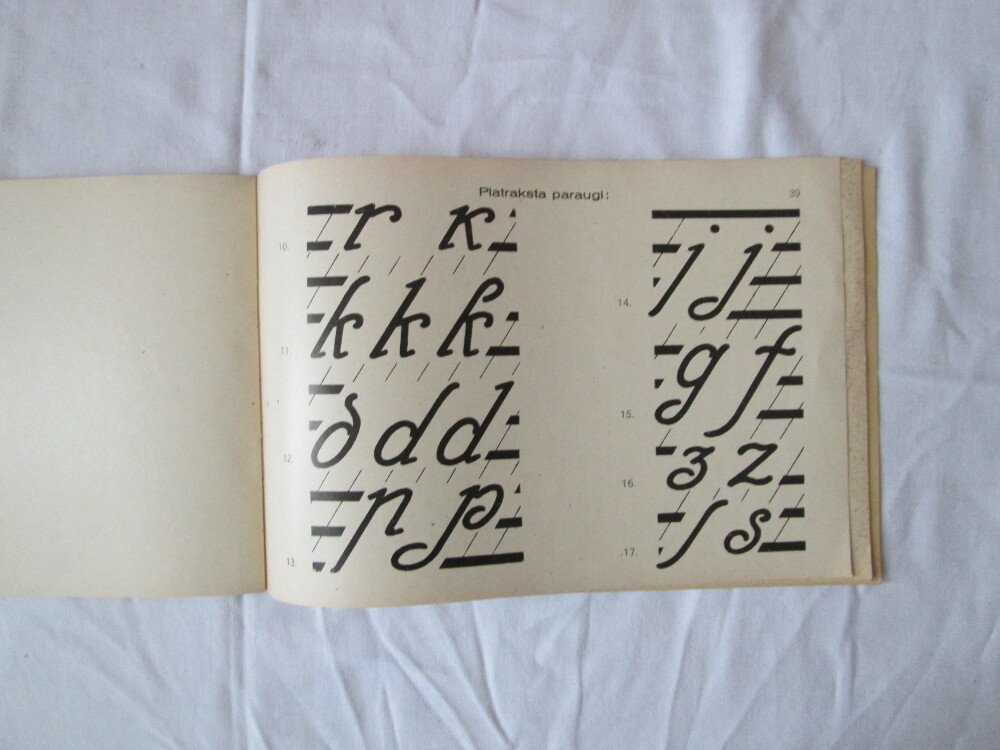 Platraksta paraugi:
39
10. r κ
11. k k k
12. δ d d
13. p p
14. j j
15. g f
16. з z
17. ſ s